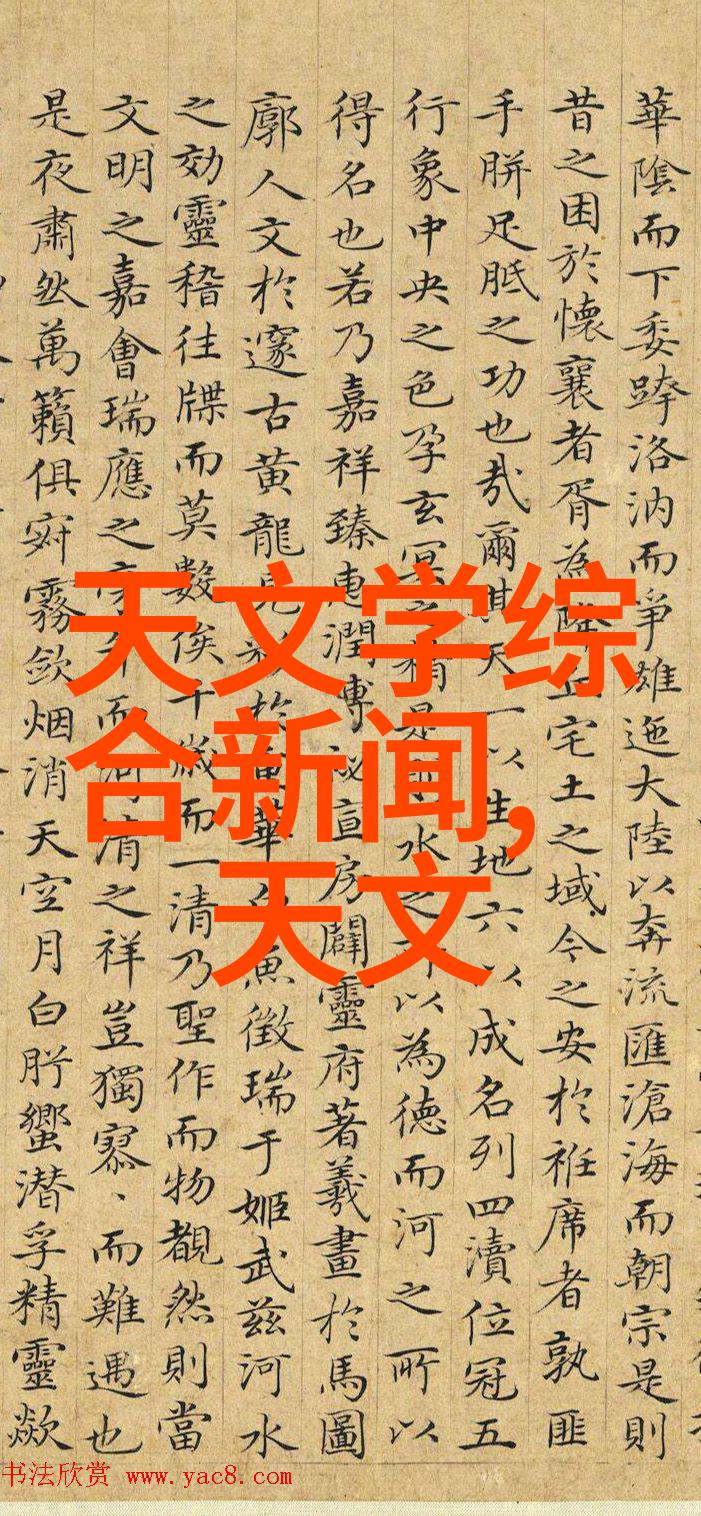 華陰而下委跨洛汭而爭雄迤大陸以奔流匯滄海而朝宗是則
昔之困於懷襄者胥為降丘宅土之域今之安於袵席者孰匪
手胼足胝之功也哉爾其天一以生地六以成名列四瀆位冠五
行象中央之色孕玄冥之精是水之所以為德而河之所以
得名也若乃嘉祥臻惠潤溥祕宣房闢靈府著羲畫於馬圖
廓人文於邃古黃龍見於華白魚徵瑞于姬武茲河水
之効靈稽往牒而莫數俟千歲而一清乃聖作而物覩然則當
文明之嘉會瑞應之而河清之祥豈獨寡、而難遇也
是夜肅然萬籟俱寂霧斂烟消天空月白肸蠁潛孚精靈歘
天文学综
合新闻,
天文
书法欣赏 www.yac8.com